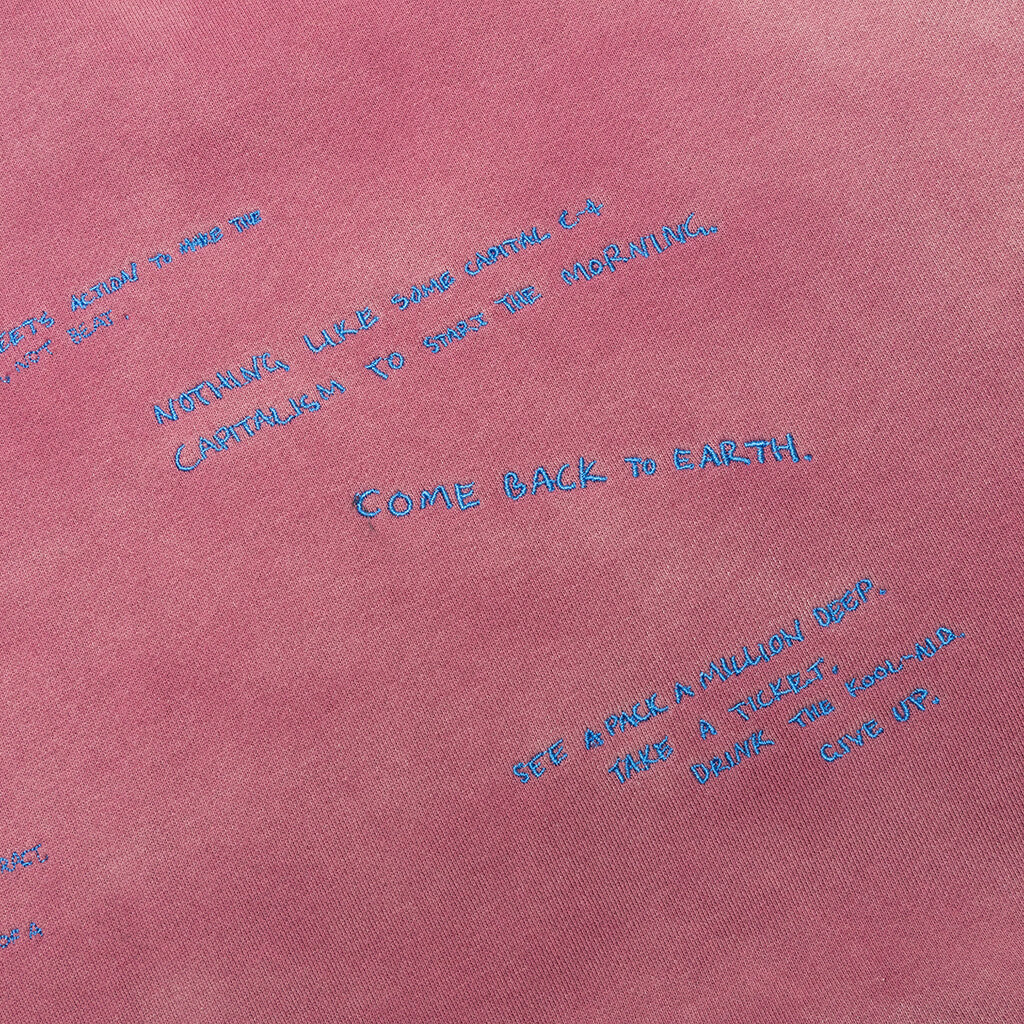 EETS ACTION TO MAKE THE
NOT
NOTHING LIKE SOME CAPITAL C-4
CAPITALISM TO START THE MORNING.
COME BACK TO EARTH.
SEE A PACK A MILLION DEEP.
TAKE A TICKET.
DRINK THE KOOL-AID.
GIVE UP.
RACT.
OF A